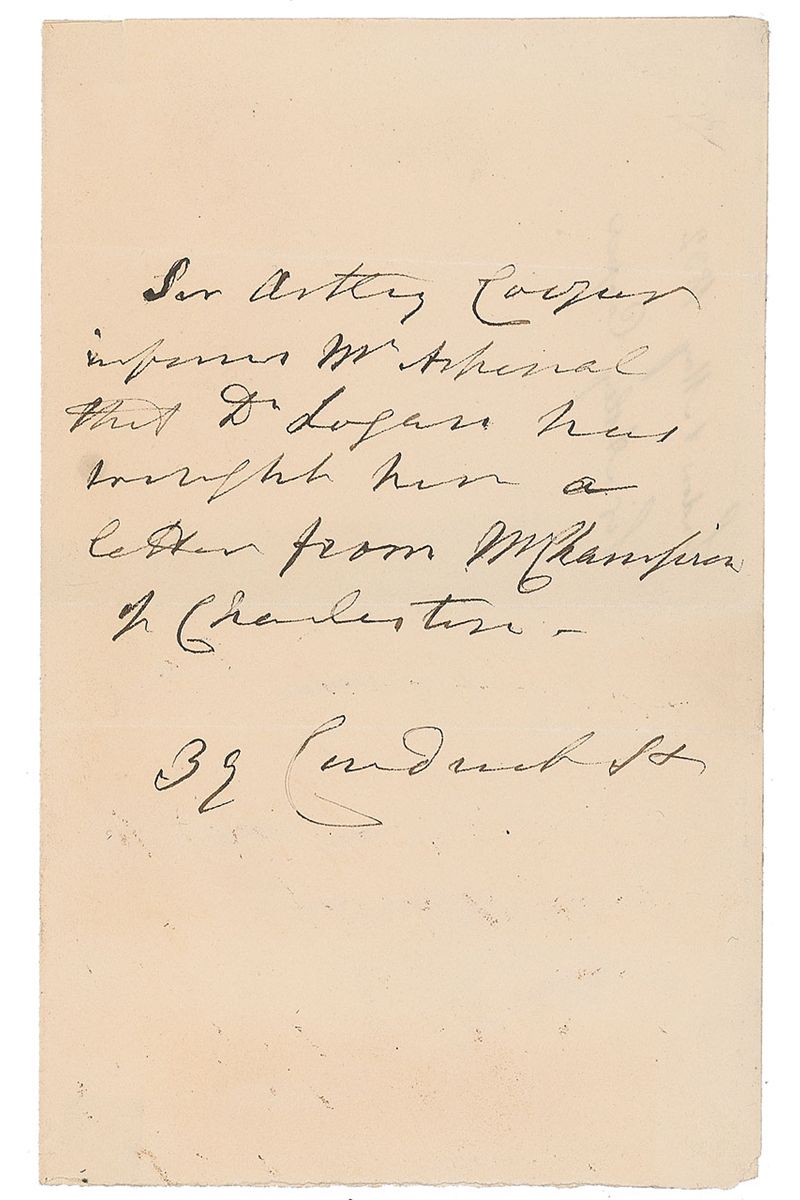 Sir Astley Cooper
informs Mr Aspinal
that Dr Logan has
brought him a
letter from Mr Champion
of Charleston –
39 Conduit St